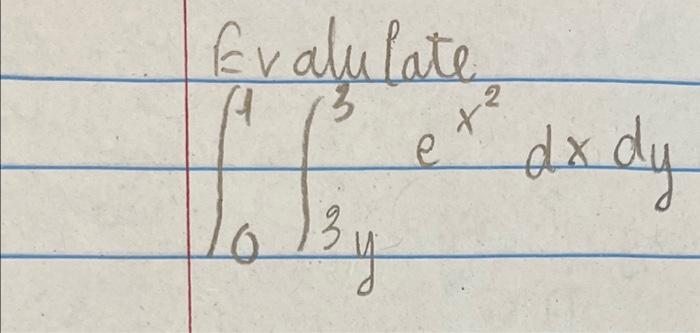 Evalulate
∫₀¹ ∫₃ᵧ³ e^{x²} dx dy